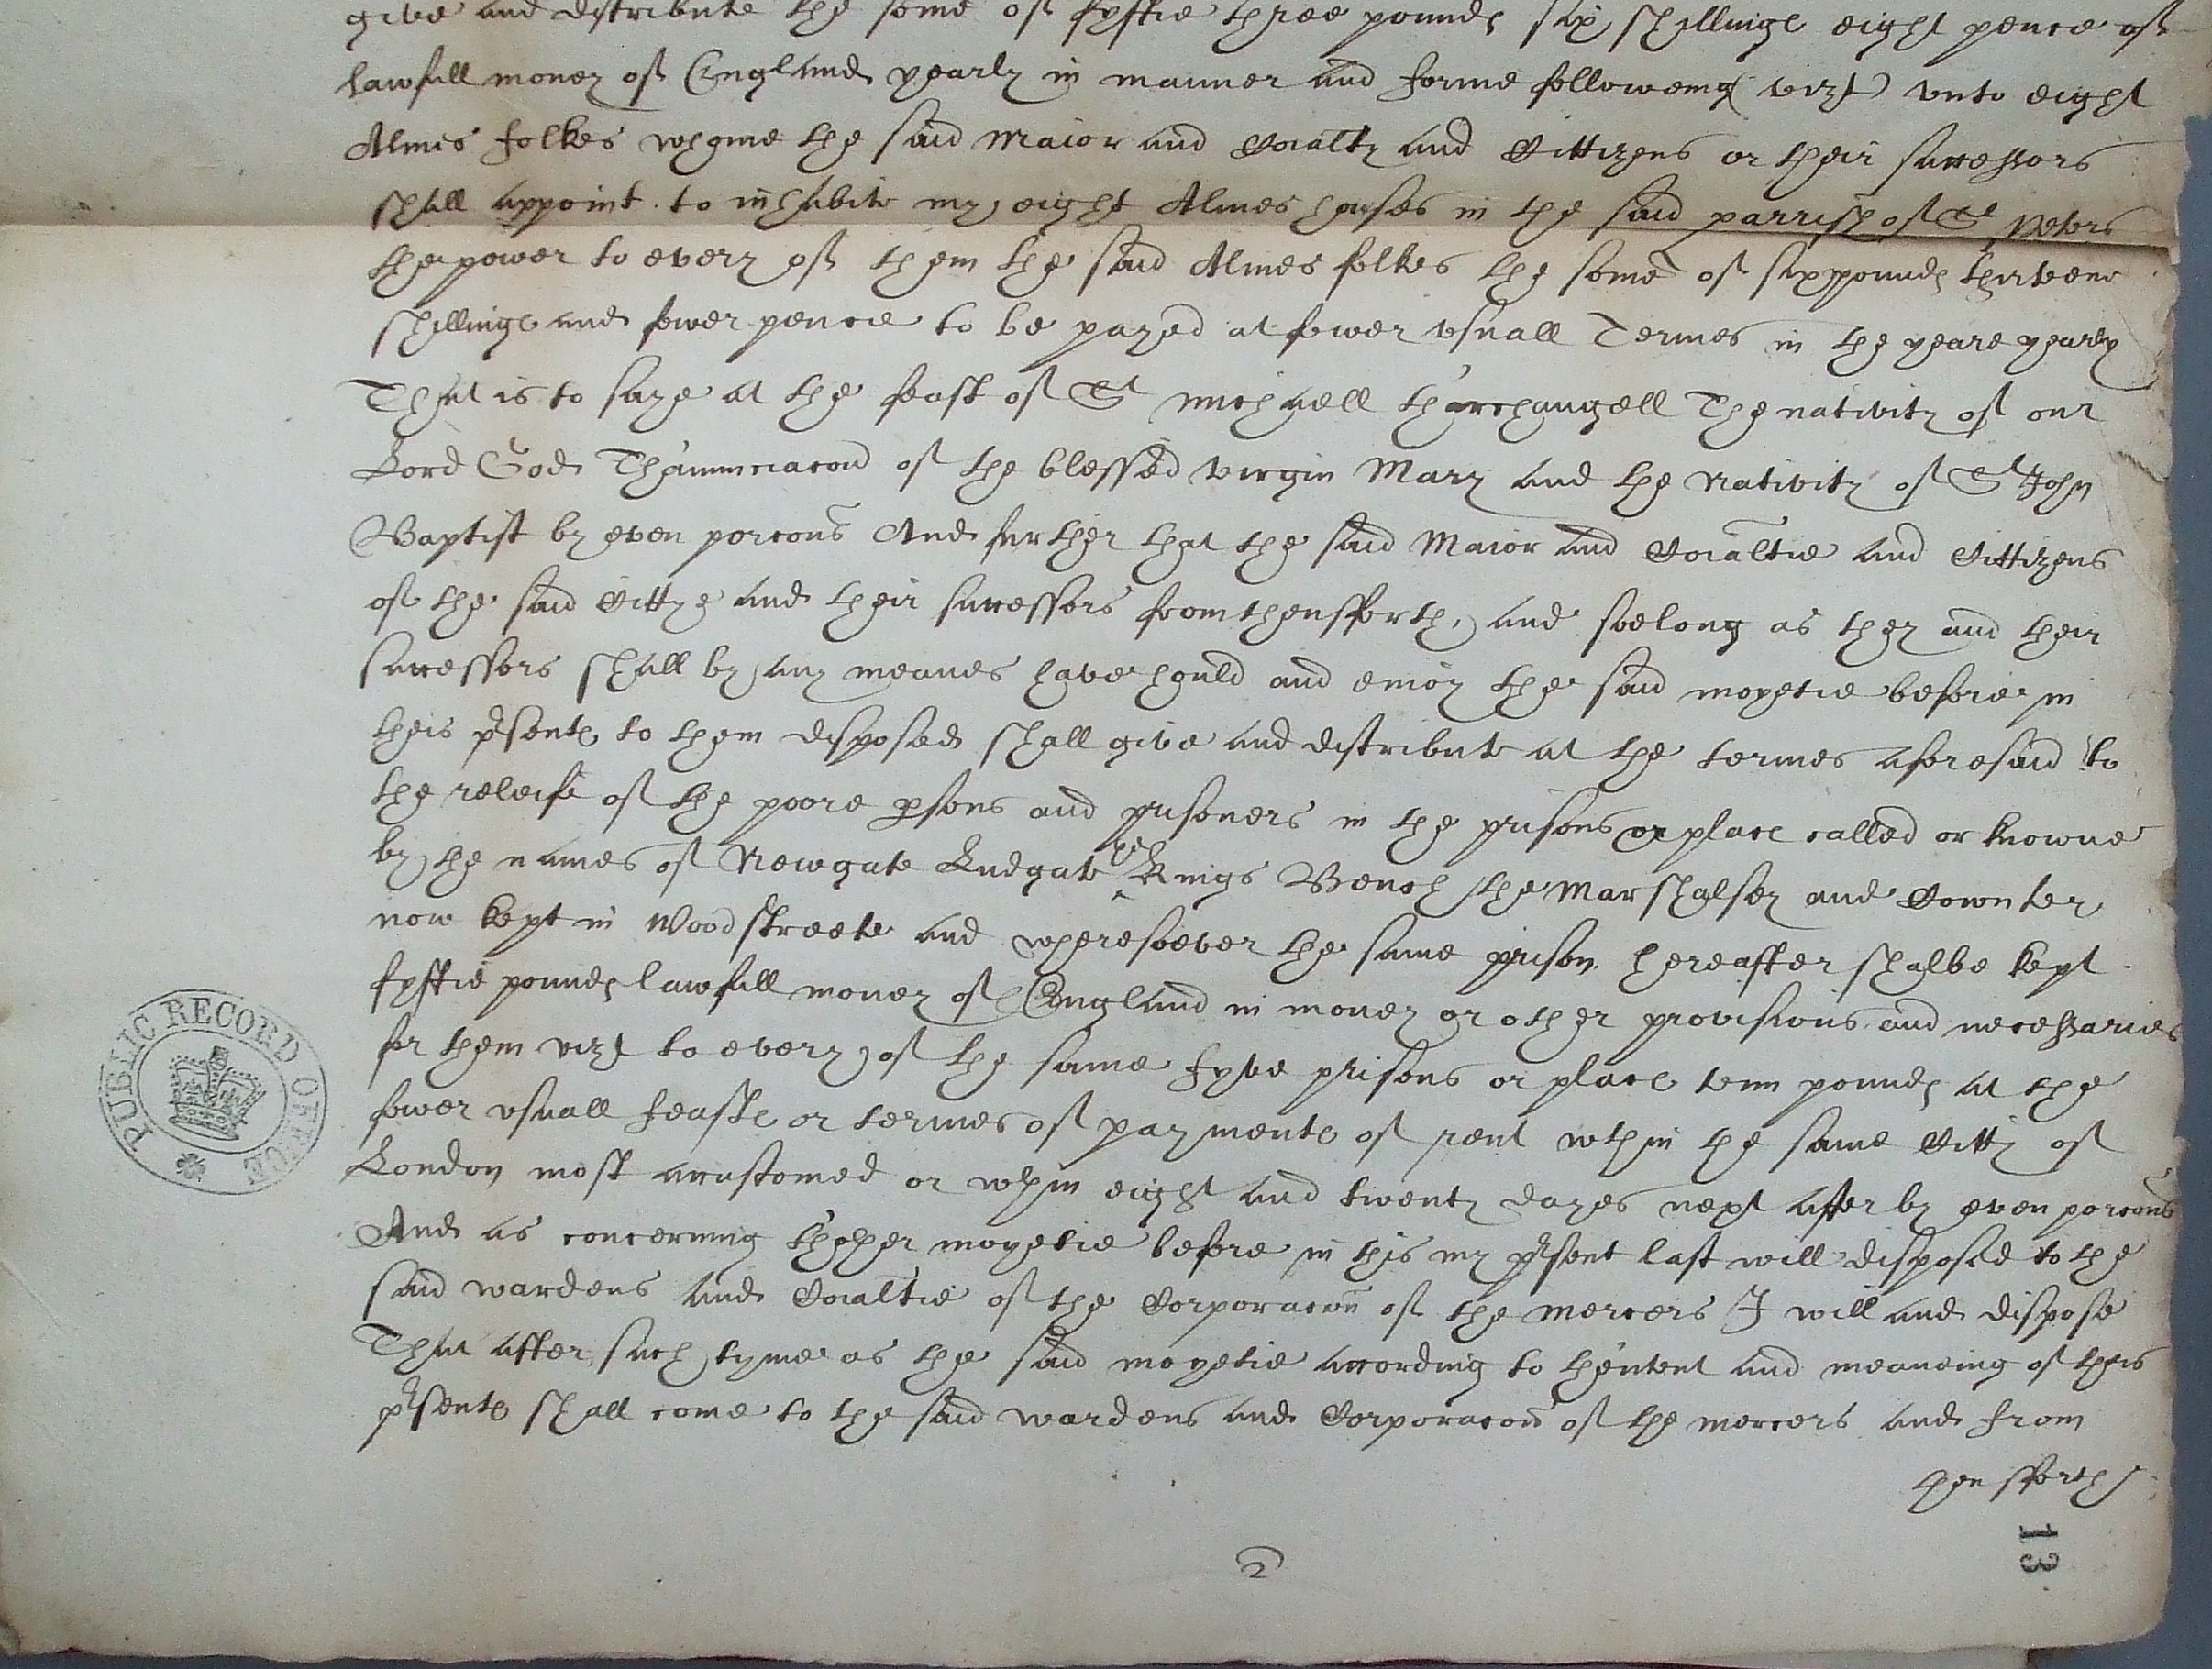 give and distribute the some of fyftie three pounds six shillings eight pence of
lawfull money of England yearly in manner and forme followeing (vizt) vnto eight
Almes folkes whome the said Maior and Coialty and Cittizens or their successors
shall appoint to inhabite my eight Almes houses in the said parrish of St Peters
the power to every of them the said Almes folkes the some of six pounds thirteene
shillings and fower pence to be payed at fower vsuall Termes in the yeare yearly
That is to saye at the feast of St Michaell tharchangell The nativity of our
Lord God Thannunciacon of the blessed virgin Mary and the Nativity of St John
Baptist by even porcons And further that the said Maior and Coialtie and Cittizens
of the said Cittye and their successors from thensfforth, and soe long as they and their
successors shall by any meanes have hould and enioy the said moyetie before in
theis psents to them disposed shall give and distribute at the termes aforesaid to
the releife of the poore psons and prisoners in the prisons or places called or knowne
by the names of Newgate Ludgate the Kings Bench the Marshalsey and Cownter
now kept in Woodstreete and wheresoever the same prison hereafter shalbe kept
fyftie pounds lawfull money of England in money or other provisions and necessaries
for them vizt to every of the same fyve prisons or places tenn pounds at the
fower vsuall feasts or termes of payments of rent wthin the same Citty of
London most accustomed or wthin eight and twenty dayes next after by even porcons
And as concerning thother moyetie before in this my psent last will disposed to the
said wardens and Coialtie of the Corporacon of the mercers I will and dispose
That after such tyme as the said moyetie according to thentent and meaneing of theis
psents shall come to the said wardens and Corporacon of the mercers and from
thensfforth
PUBLIC RECORD OFFICE
13
2